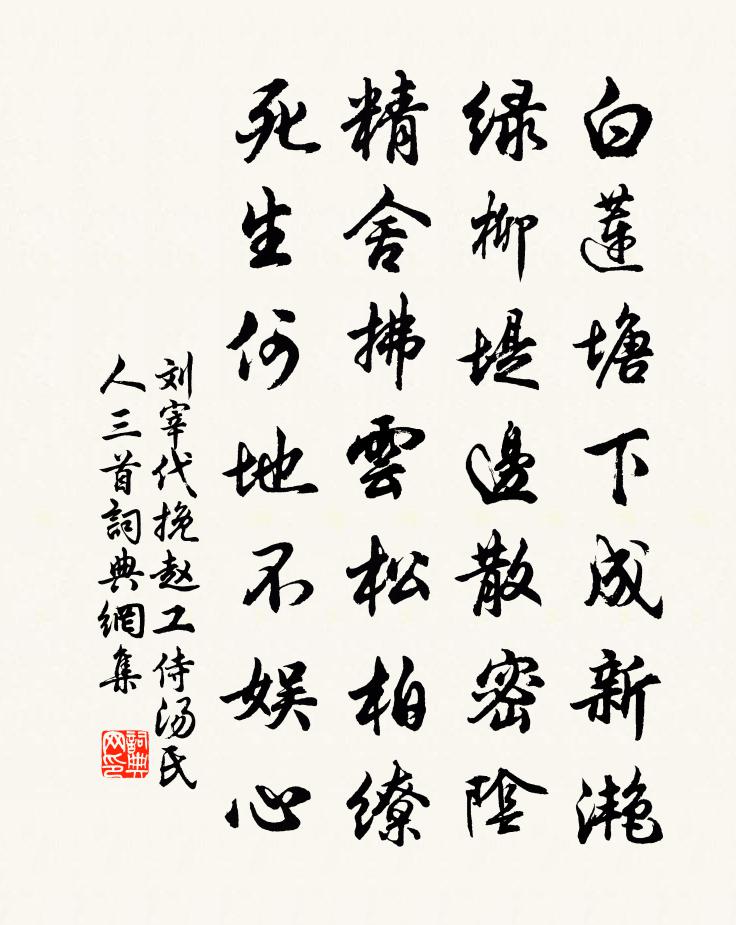 白蓮塘下成新滟
緑柳堤邊散密陰
精舍拂雲松柏繚
死生何地不娱心
刘宰代挽赵工侍汤氏
人三首詞典網集
詞典网印